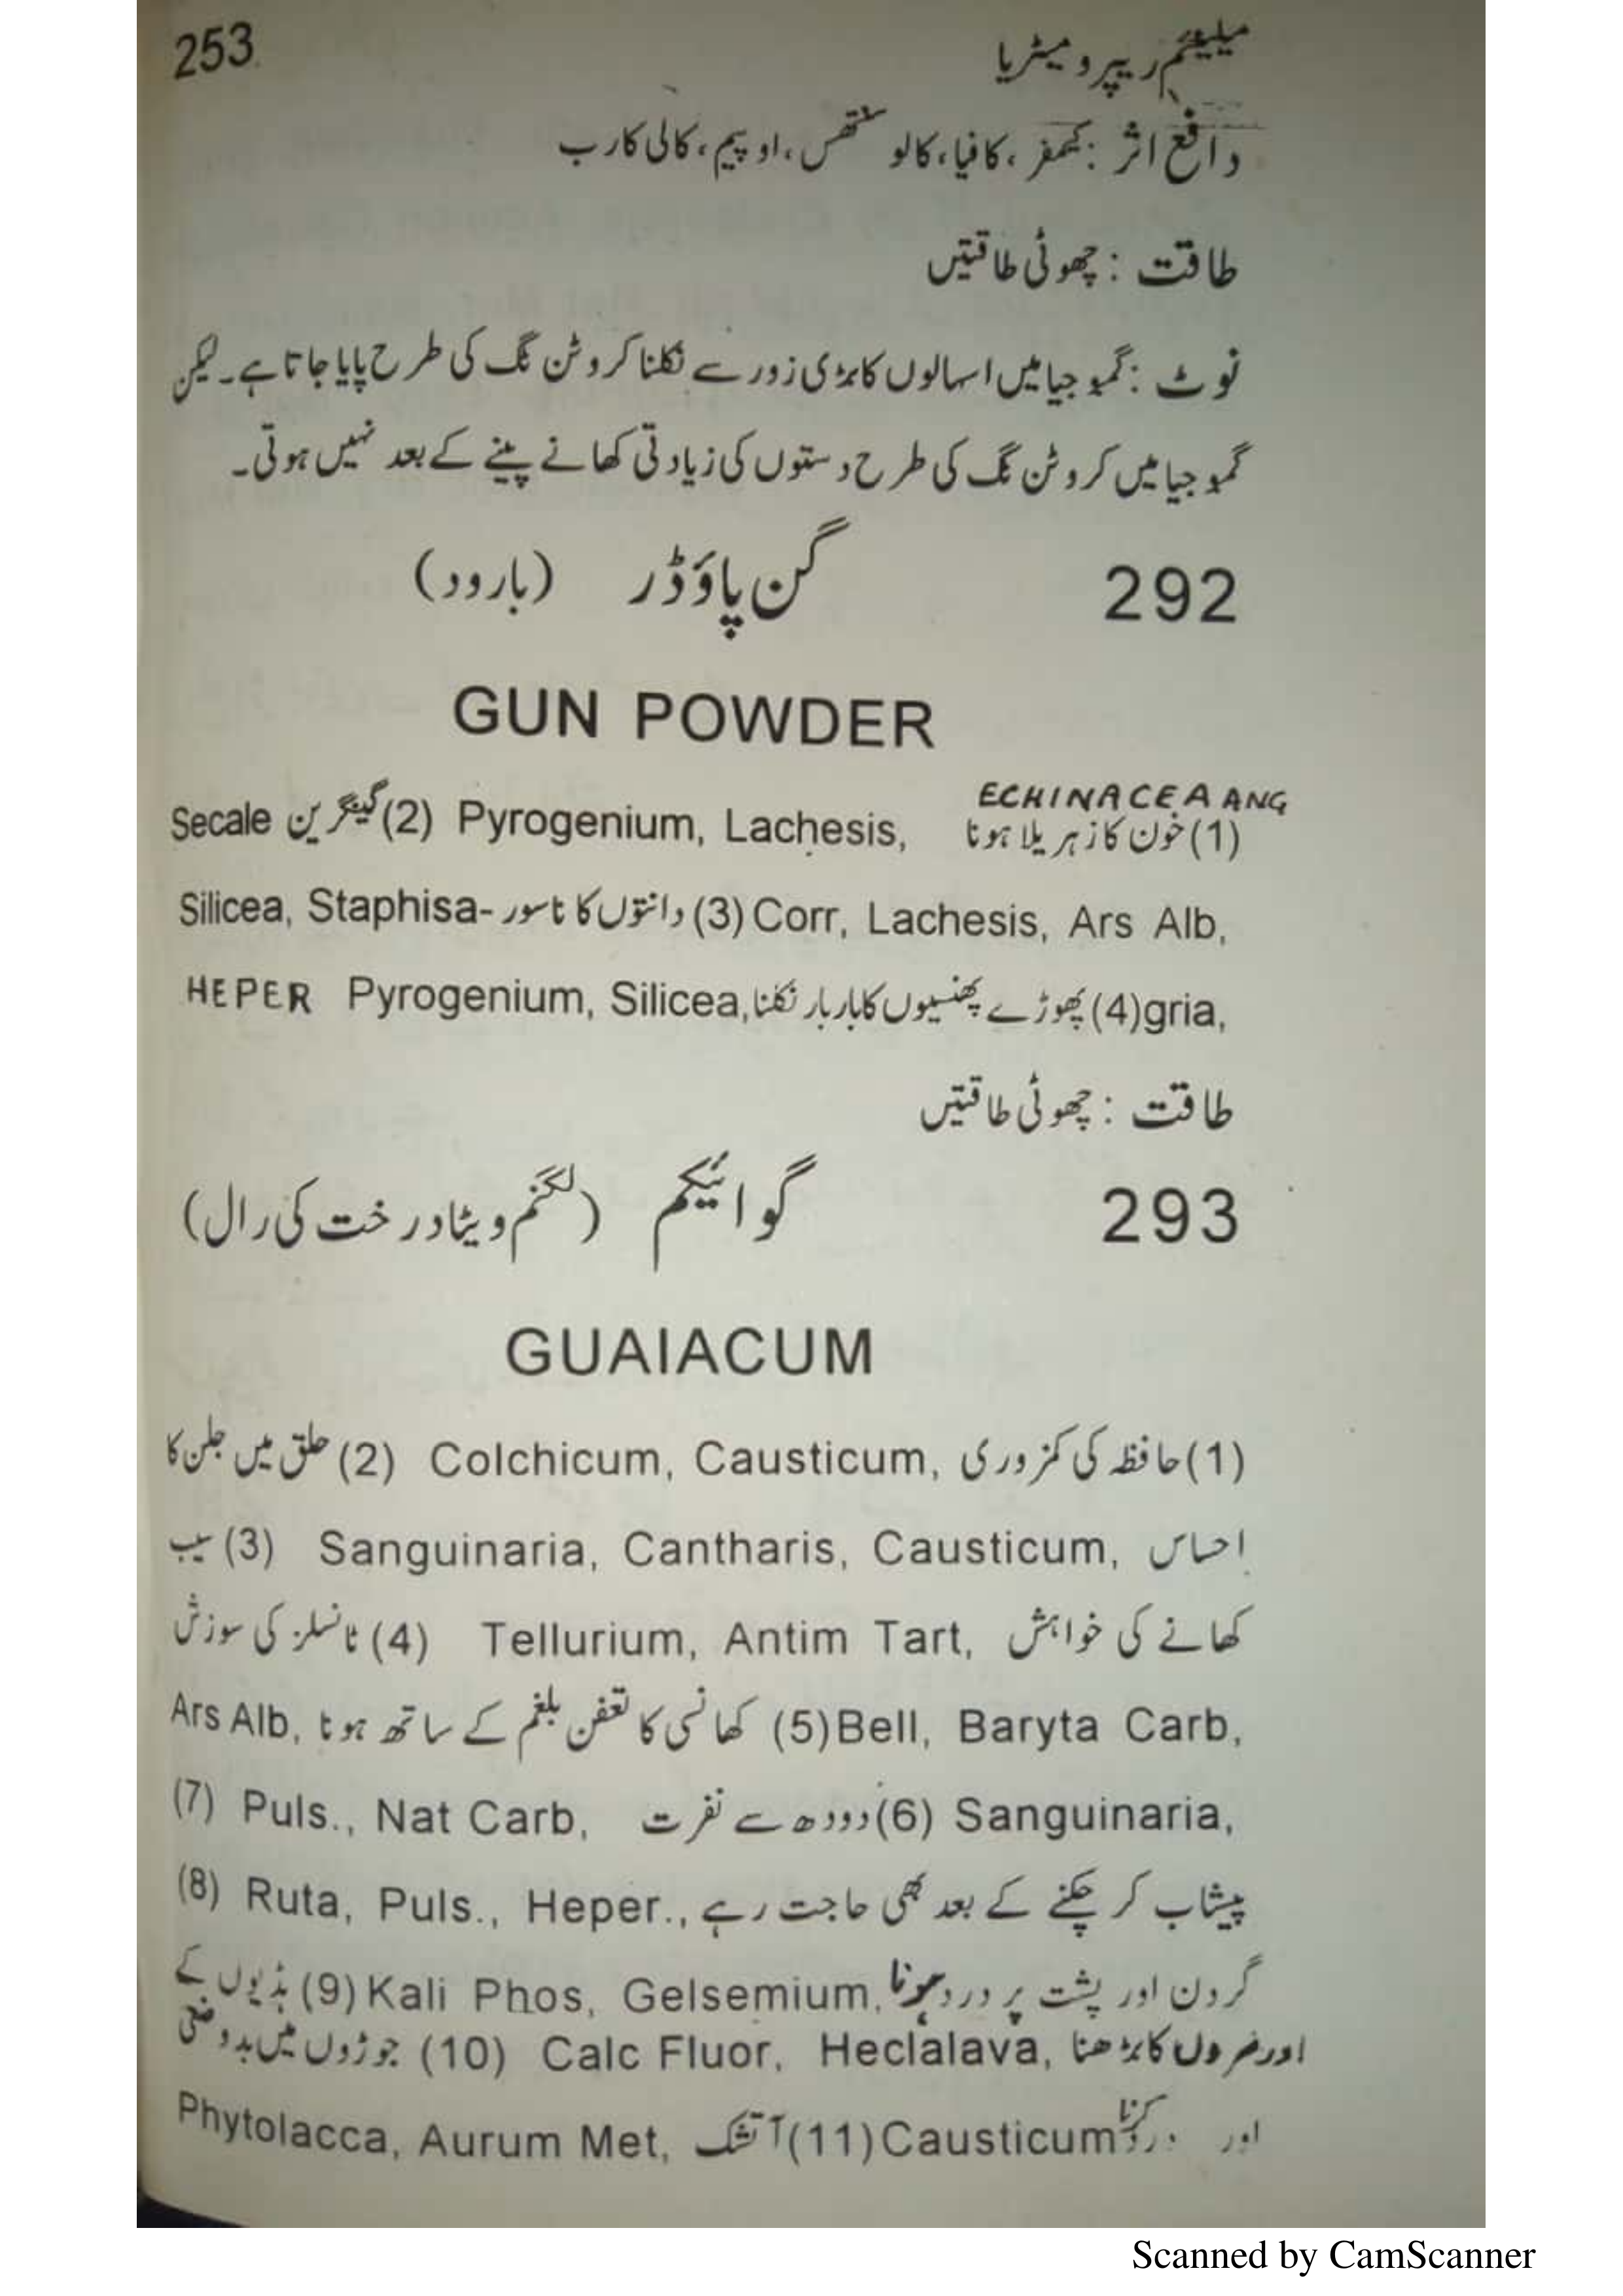 253
میلینیم ریپرومیٹریا
دافع اثر : کیمفر ، کافیا، کالو سنتھس، اوپیم، کالی کارب
طاقت : چھوٹی طاقتیں
نوٹ : گمبوجیا میں اسہالوں کا بڑی زور سے نکلنا کروٹن ٹگ کی طرح پایا جاتا ہے۔ لیکن
گمبوجیا میں کروٹن ٹگ کی طرح دستوں کی زیادتی کھانے پینے کے بعد نہیں ہوتی۔
292 گن پاؤڈر (بارود)
GUN POWDER
ECHINACEA ANG
(1) خون کا زہریلا ہونا Pyrogenium, Lachesis, (2) گینگرین Secale
Corr, Lachesis, Ars Alb, (3) دانتوں کا ناسور Silicea, Staphisa-
gria, (4) پھوڑے پھنسیوں کا بار بار نکلنا Pyrogenium, Silicea, HEPER
طاقت : چھوٹی طاقتیں
293 گوائیکم (لگنم ویٹا درخت کی رال)
GUAIACUM
(1) حافظہ کی کمزوری Colchicum, Causticum, (2) حلق میں جلن کا
احساس Sanguinaria, Cantharis, Causticum, (3) سیب
کھانے کی خواہش Tellurium, Antim Tart, (4) ٹانسلز کی سوزش
Bell, Baryta Carb, (5) کھانسی کا تعفن بلغم کے ساتھ ہونا Ars Alb,
Sanguinaria, (6) دودھ سے نفرت Puls., Nat Carb, (7)
پیشاب کر چکنے کے بعد بھی حاجت رہے Ruta, Puls., Heper., (8)
گردن اور پشت پر درد ہونا Kali Phos, Gelsemium, (9) ہڈیوں کے
اور سروں کا بڑھنا Calc Fluor, Heclalava, (10) جوڑوں میں بدوضعی
اور درد کرنا Causticum (11) آتشک Phytolacca, Aurum Met,
Scanned by CamScanner